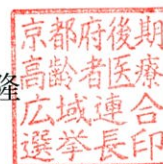 隆
京都府後期
高齢者医療
広域連合
選挙長印